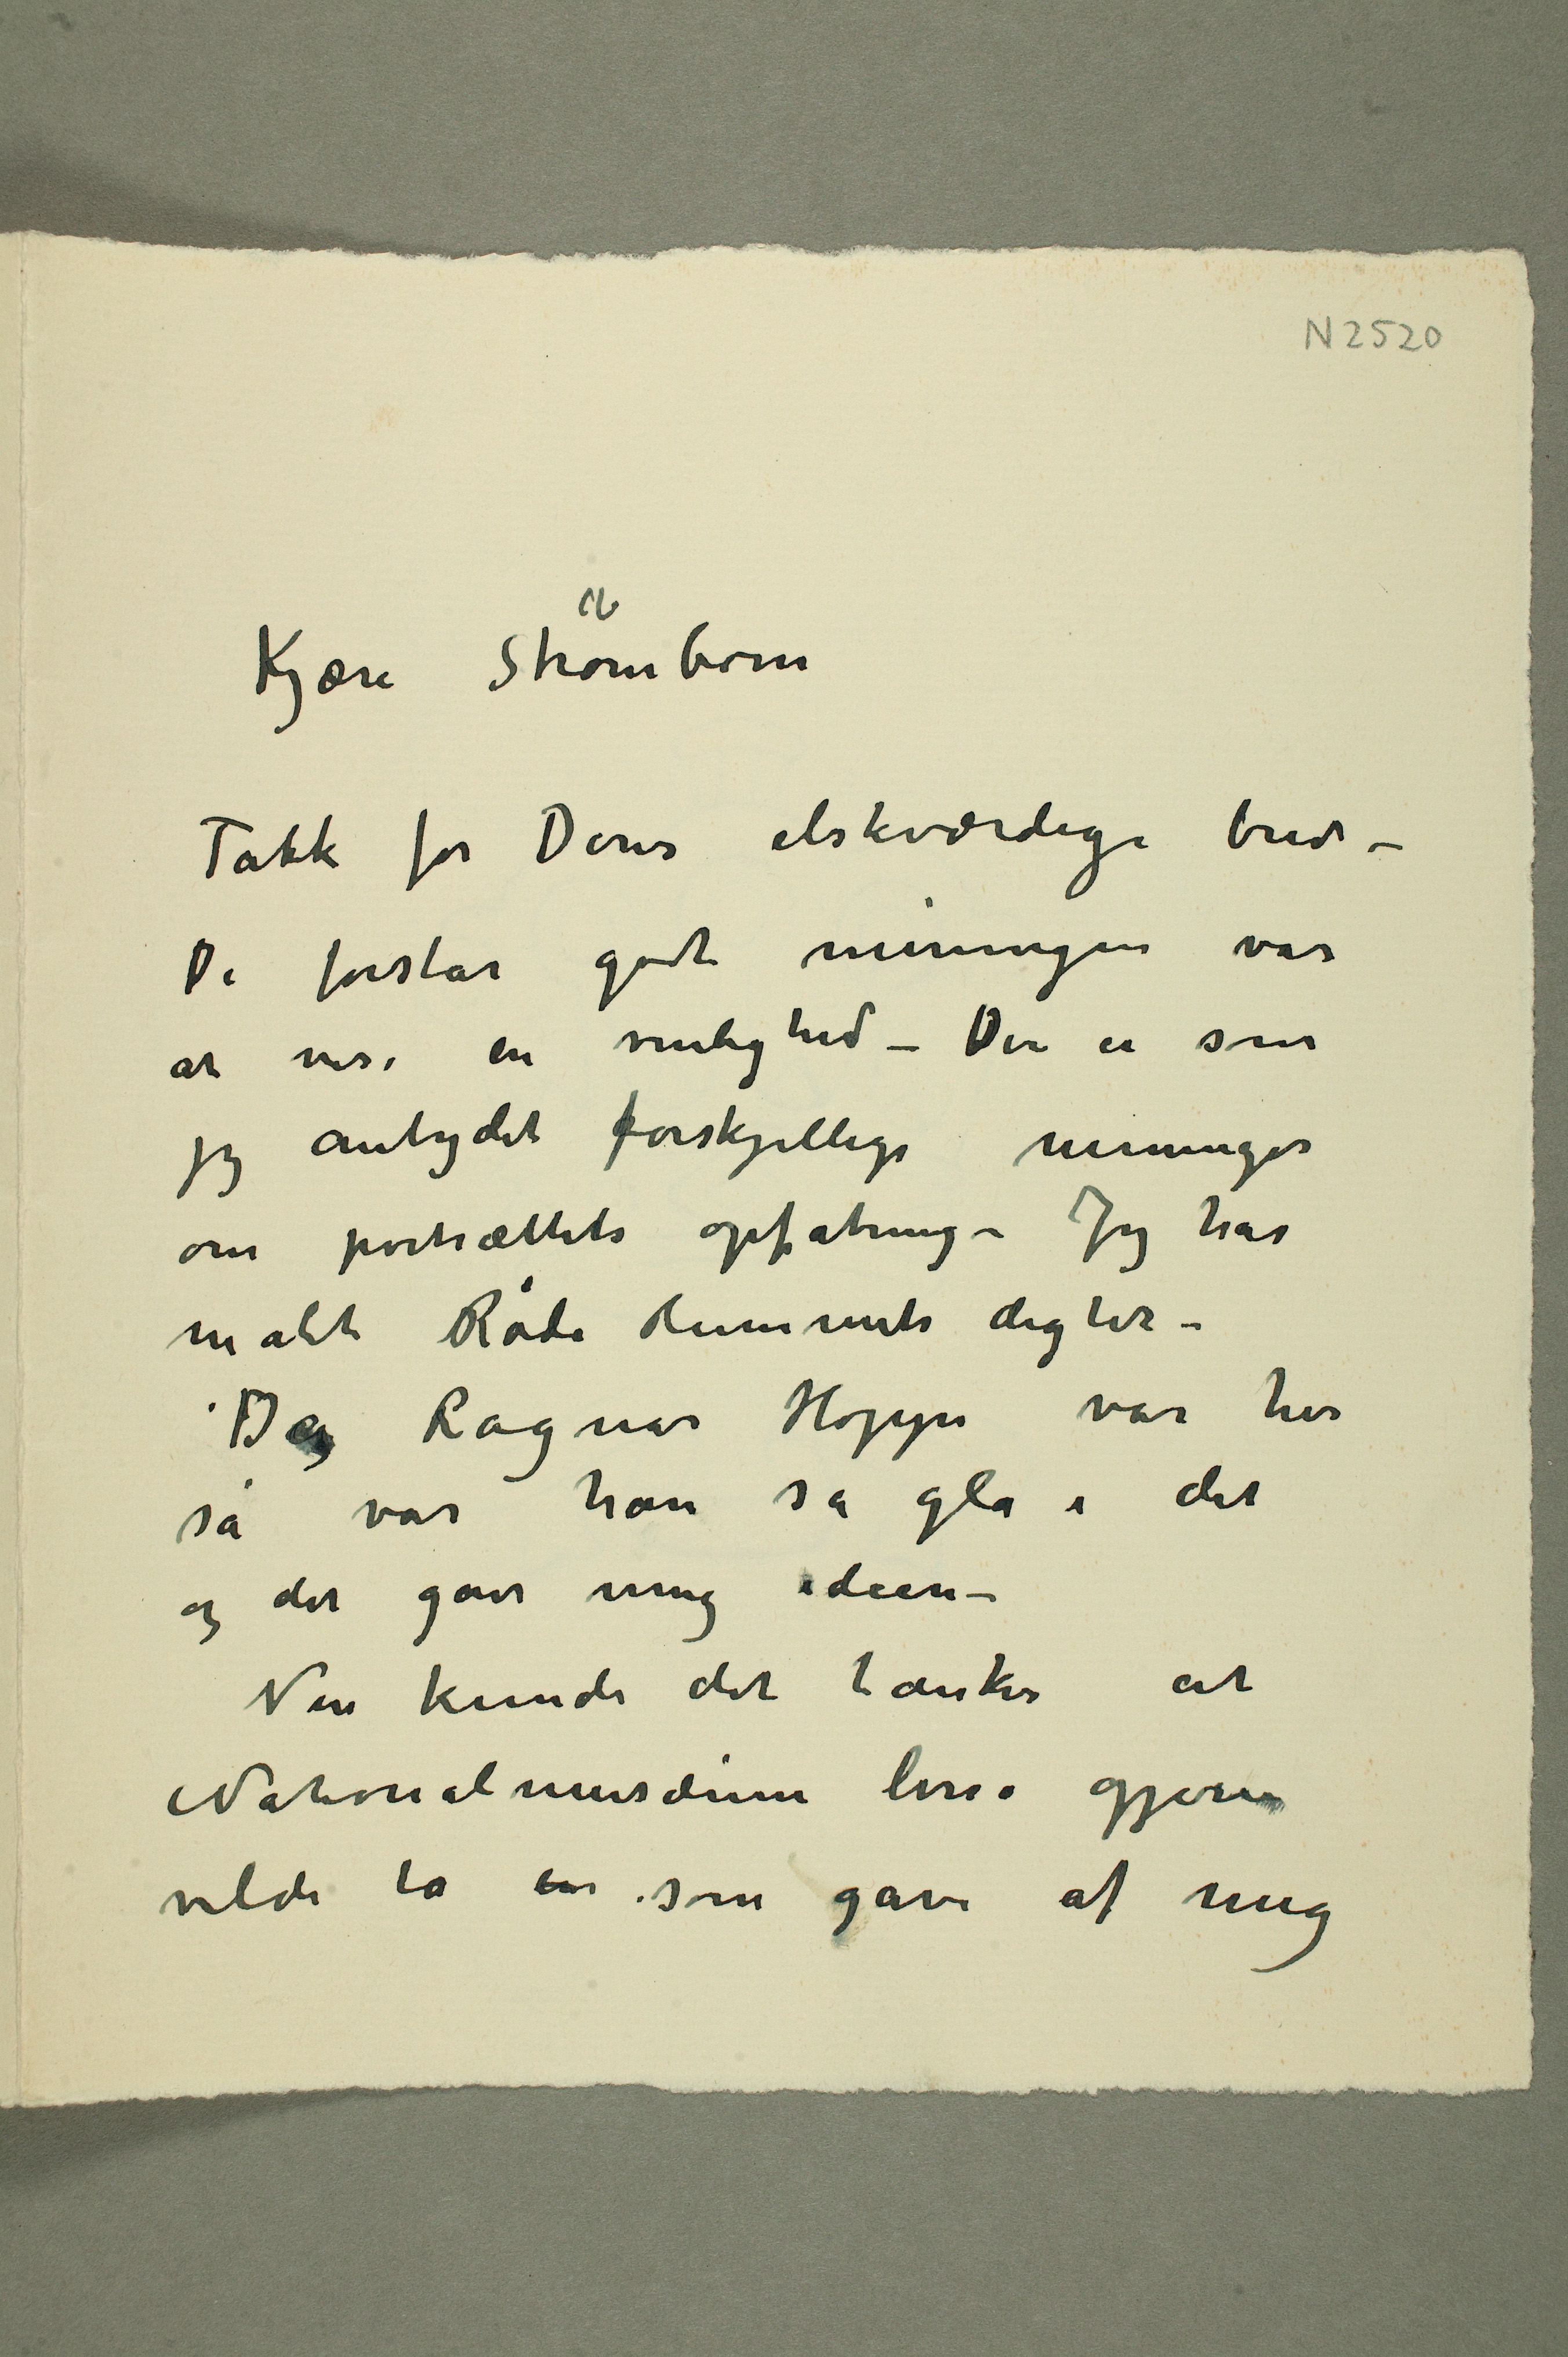 N 2520
Kjære Strömbom
Takk for Deres elskværdige brev –
De forstår godt meningen var
at vise en venlighed – Der er som
jeg antydet forskjellige meninger
om portrættets opfatning – Jeg har
malt Röde Rummets digter –
Da Ragnar Hoppe var her
så var han så gla i det
og det gav mig ideen –
Nu kunde det tænkes at
Nationalmusæum lisså gjerne
vilde ta en som gave af mig